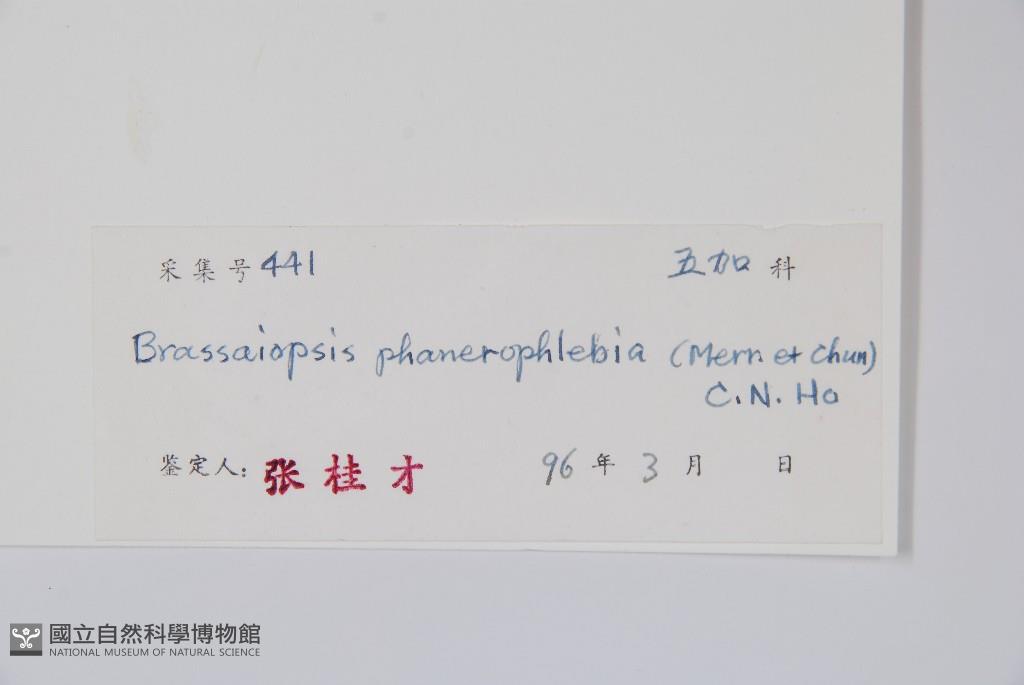 采集号 441 五加 科
Brassaiopsis phanerophlebia (Merr. et Chun)
C.N. Ho
鉴定人: 张桂才 96 年 3 月 日
國立自然科學博物館
NATIONAL MUSEUM OF NATURAL SCIENCE